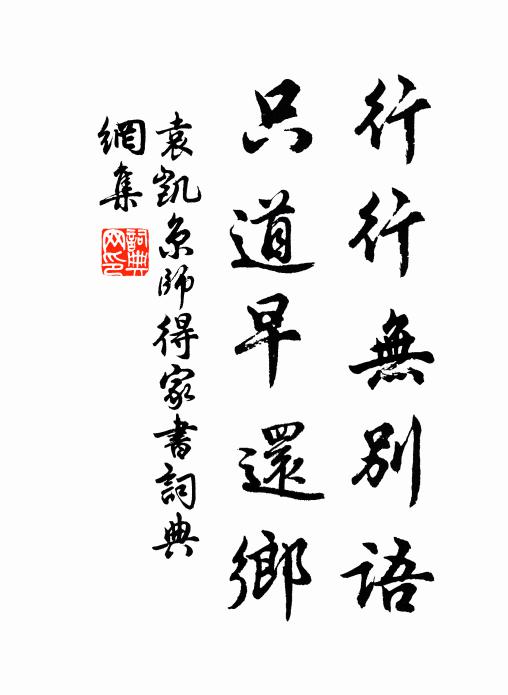 行行無別語
只道早還鄉
袁凱京師得家書詞典
網集
詞典
網印